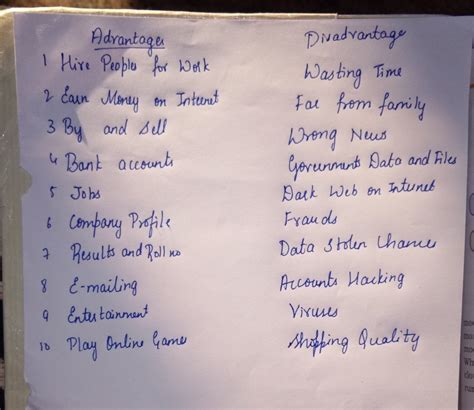 Advantages Disadvantage
1 Hire People for Work Wasting Time
2 Earn Money on Internet Far from family
3 By and sell Wrong News
4 Bank accounts Government Data and Files
5 Jobs Dark Web on Internet
6 Company Profile Frauds
7 Results and Roll no Data Stolen Chance
8 E-mailing Accounts Hacking
9 Entertainment Viruses
10 Play Online Game Shopping Quality